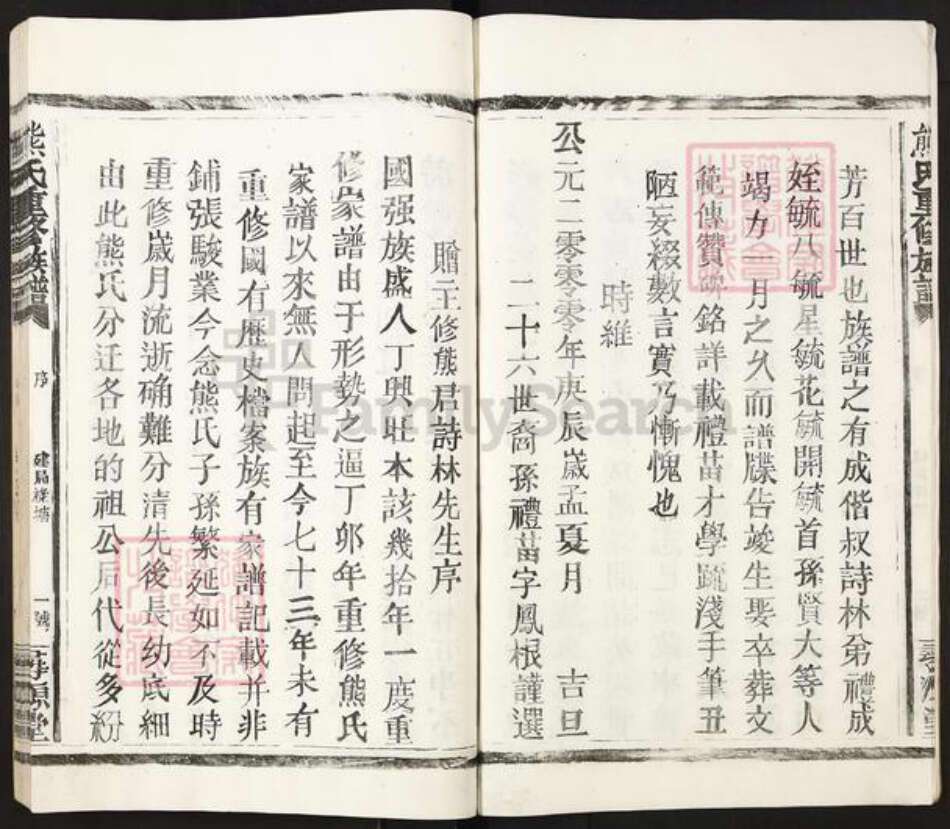 芳百世也族譜之有成偕叔詩林弟禮成
姪毓八毓星毓花毓開毓首孫賢大等人
竭力一月之久而譜牒告竣生娶卒葬文
範傳贊碑銘詳載禮苗才學疏淺手筆丑
陋妄綴數言實乃慚愧也
時維
公元二零零零年庚辰嵗孟夏月 吉旦
二十六世裔孫禮苗字鳳根謹選
贈主修熊君詩林先生序
國强族盛人丁興旺本該幾拾年一度重
修家譜由于形勢之逼丁卯年重修熊氏
家譜以來無人問起至今七十三年未有
重修國有歷史檔案族有家譜記載并非
鋪張駿業今念熊氏子孫繁延如不及時
重修嵗月流逝确難分清先後長幼底細
由此熊氏分迁各地的祖公后代從多紛
熊氏重修族譜
序
一號
尋源堂
熊氏重修族譜
尋源堂
FamilySearch